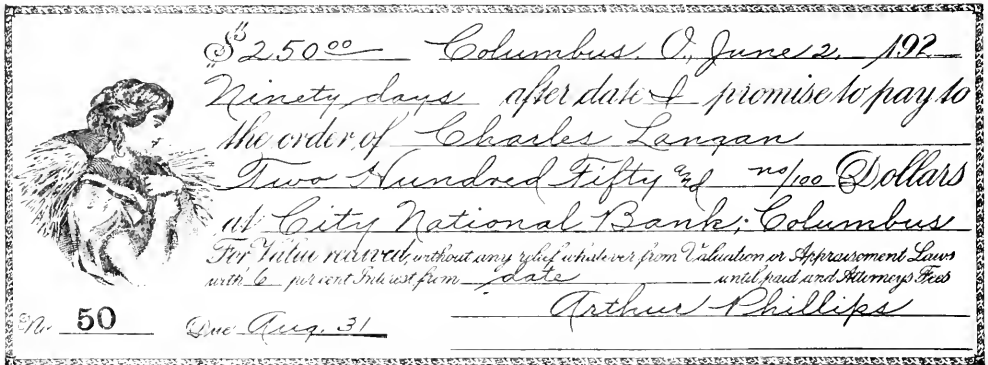 $250 00 Columbus, O., June 2, 192
Ninety days after date I promise to pay to
the order of Charles Langan
Two Hundred Fifty and no/100 Dollars
at City National Bank, Columbus
For Value received, without any relief whatever from Valuation or Appraisement Laws
with 6 per cent Interest from date until paid and Attorneys Fees
Arthur Phillips
No. 50 Due Aug. 31